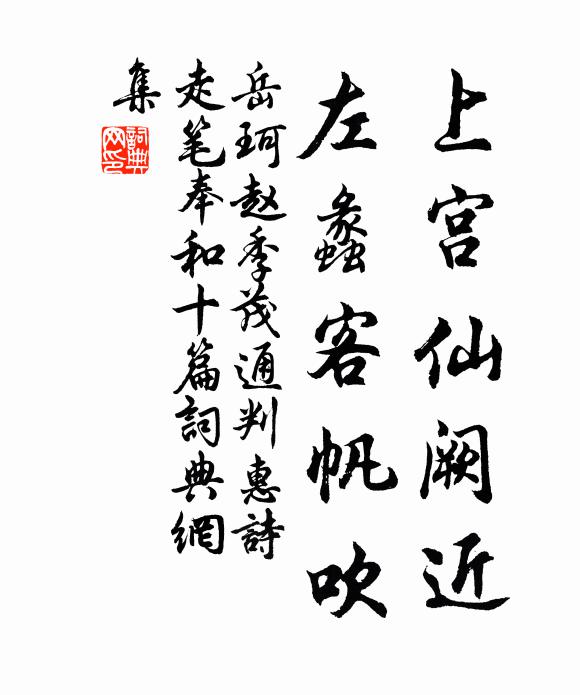 上宫仙阙近
左蠡客帆吹
岳珂赵季茂通判惠詩
走笔奉和十篇詞典網
集
詞典
网印